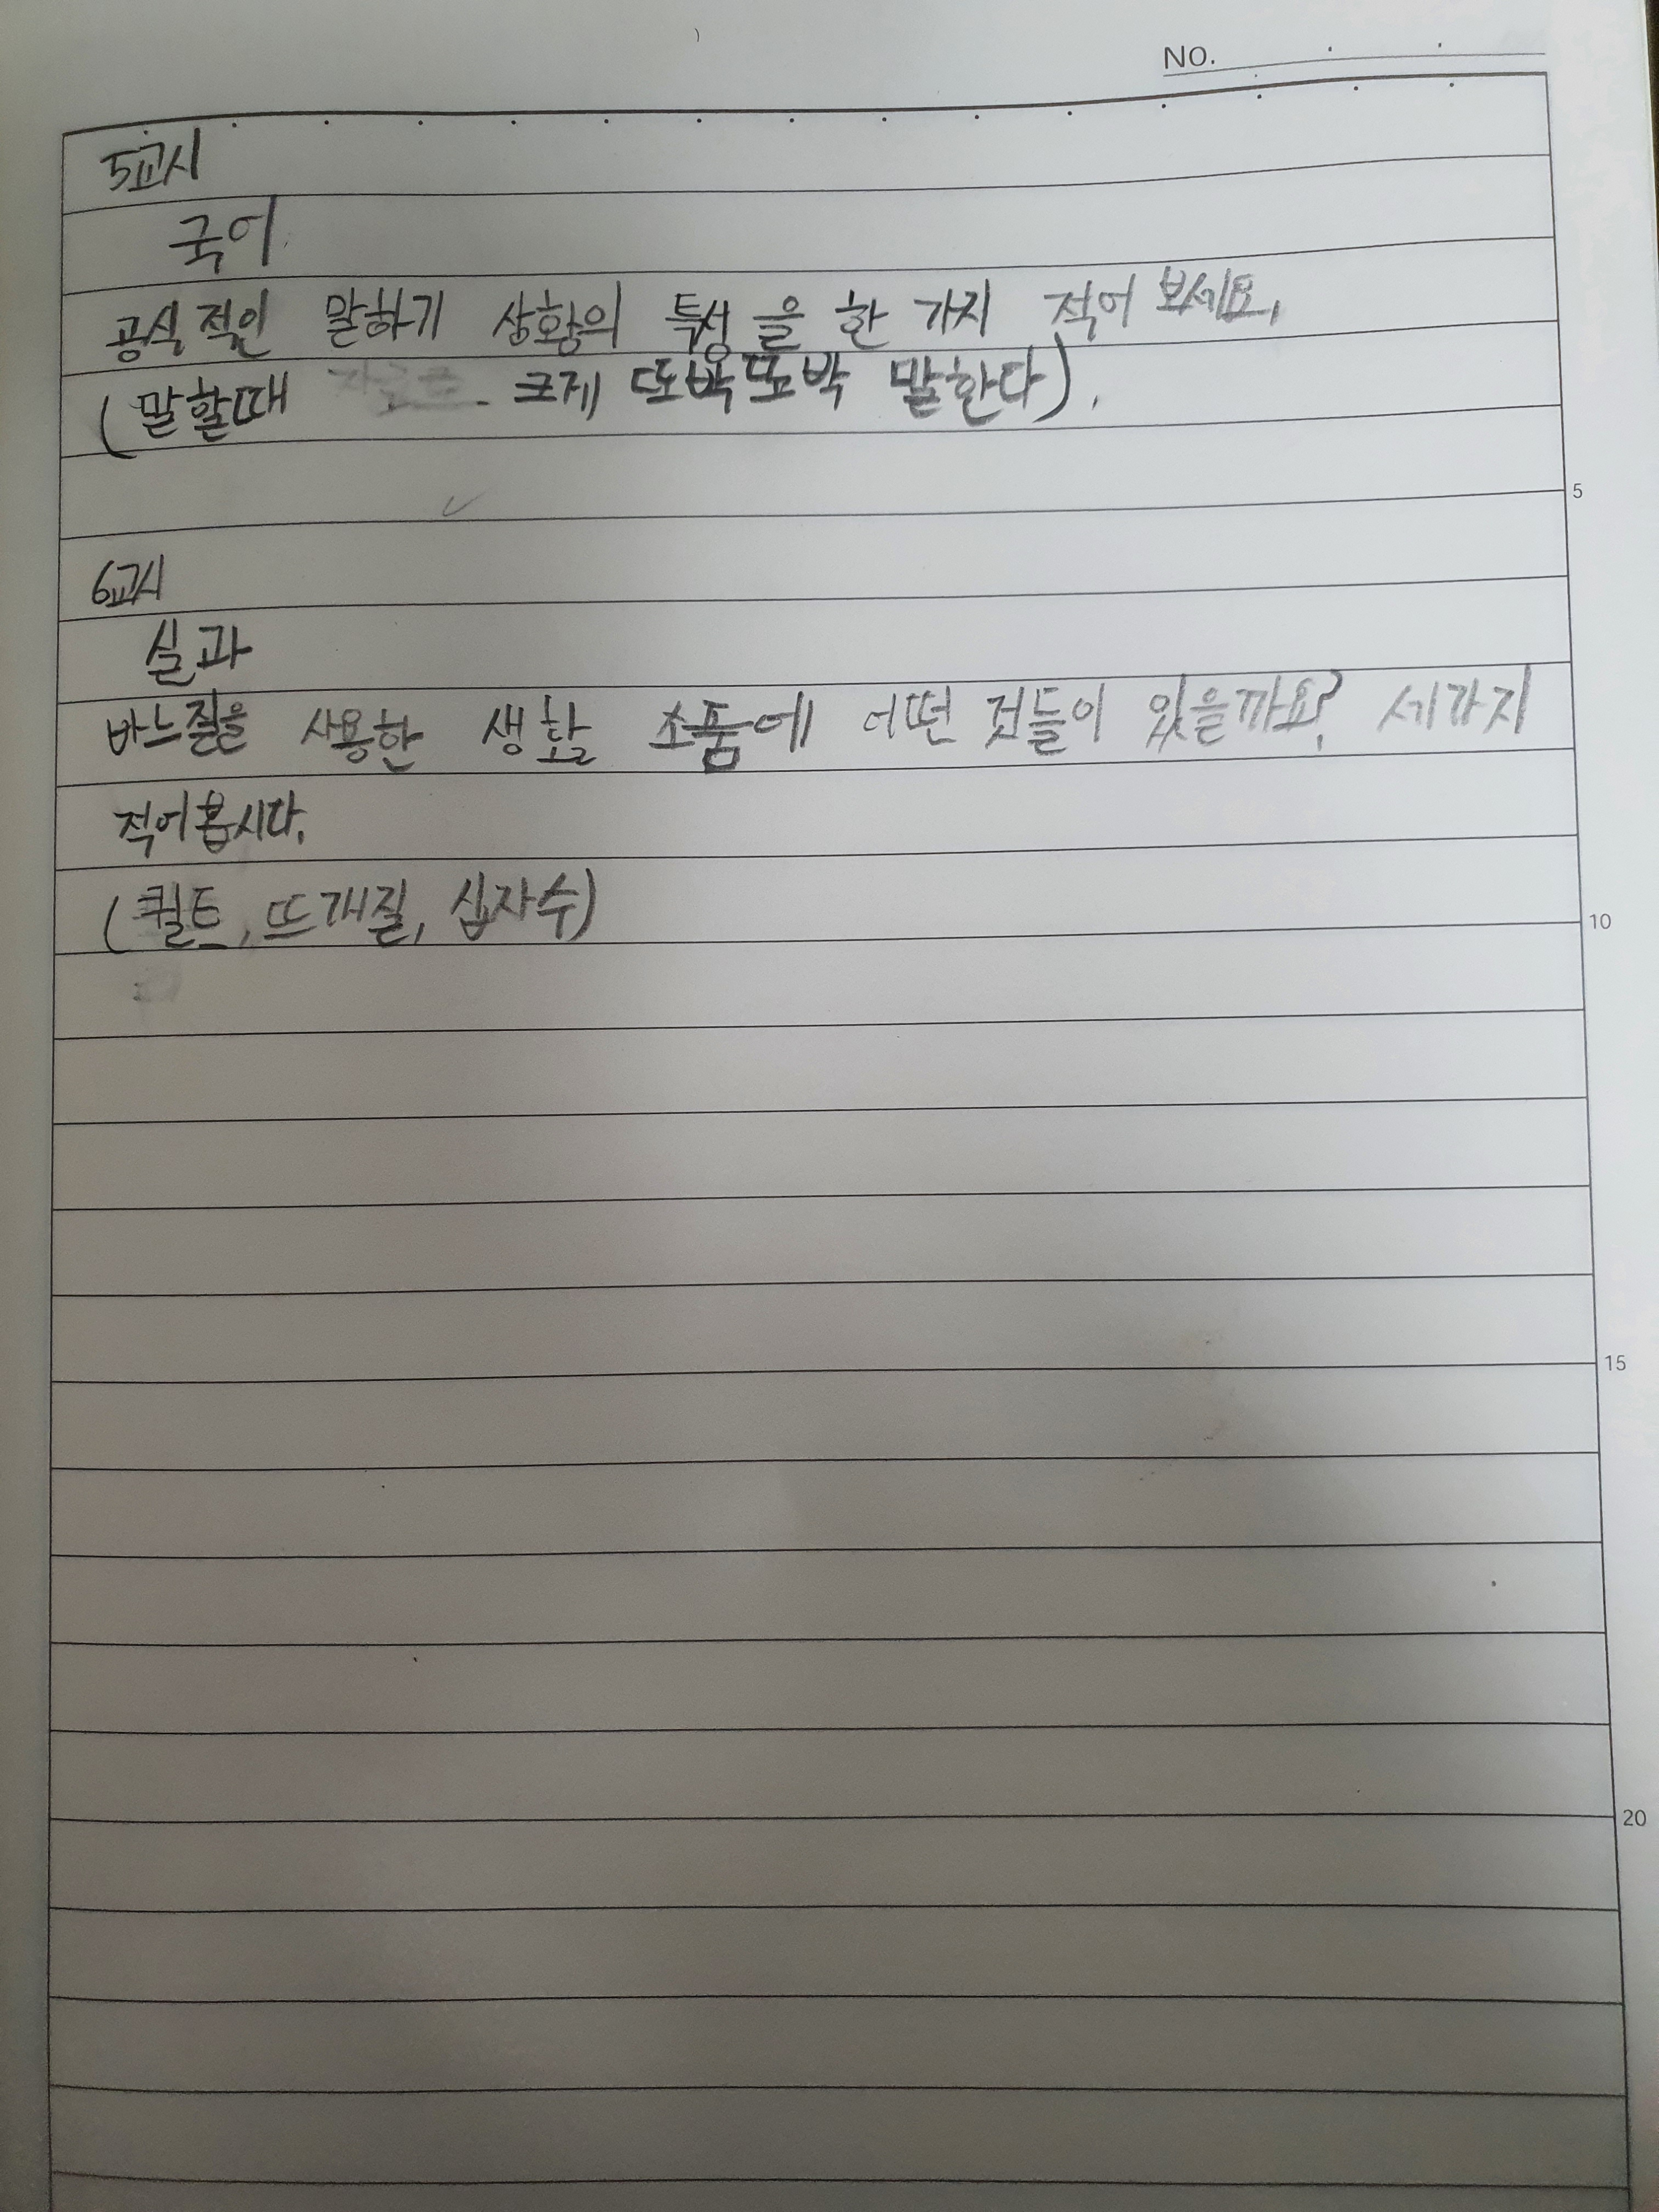 NO.
5교시
국어
공식적인 말하기 상황의 특성을 한 가지 적어 보세요.
(말할때 크게 또박또박 말한다).
5
6교시
실과
바느질을 사용한 생활 소품에 어떤 것들이 있을까요? 세가지
적어봅시다.
(퀼트, 뜨개질, 십자수)
10
15
20